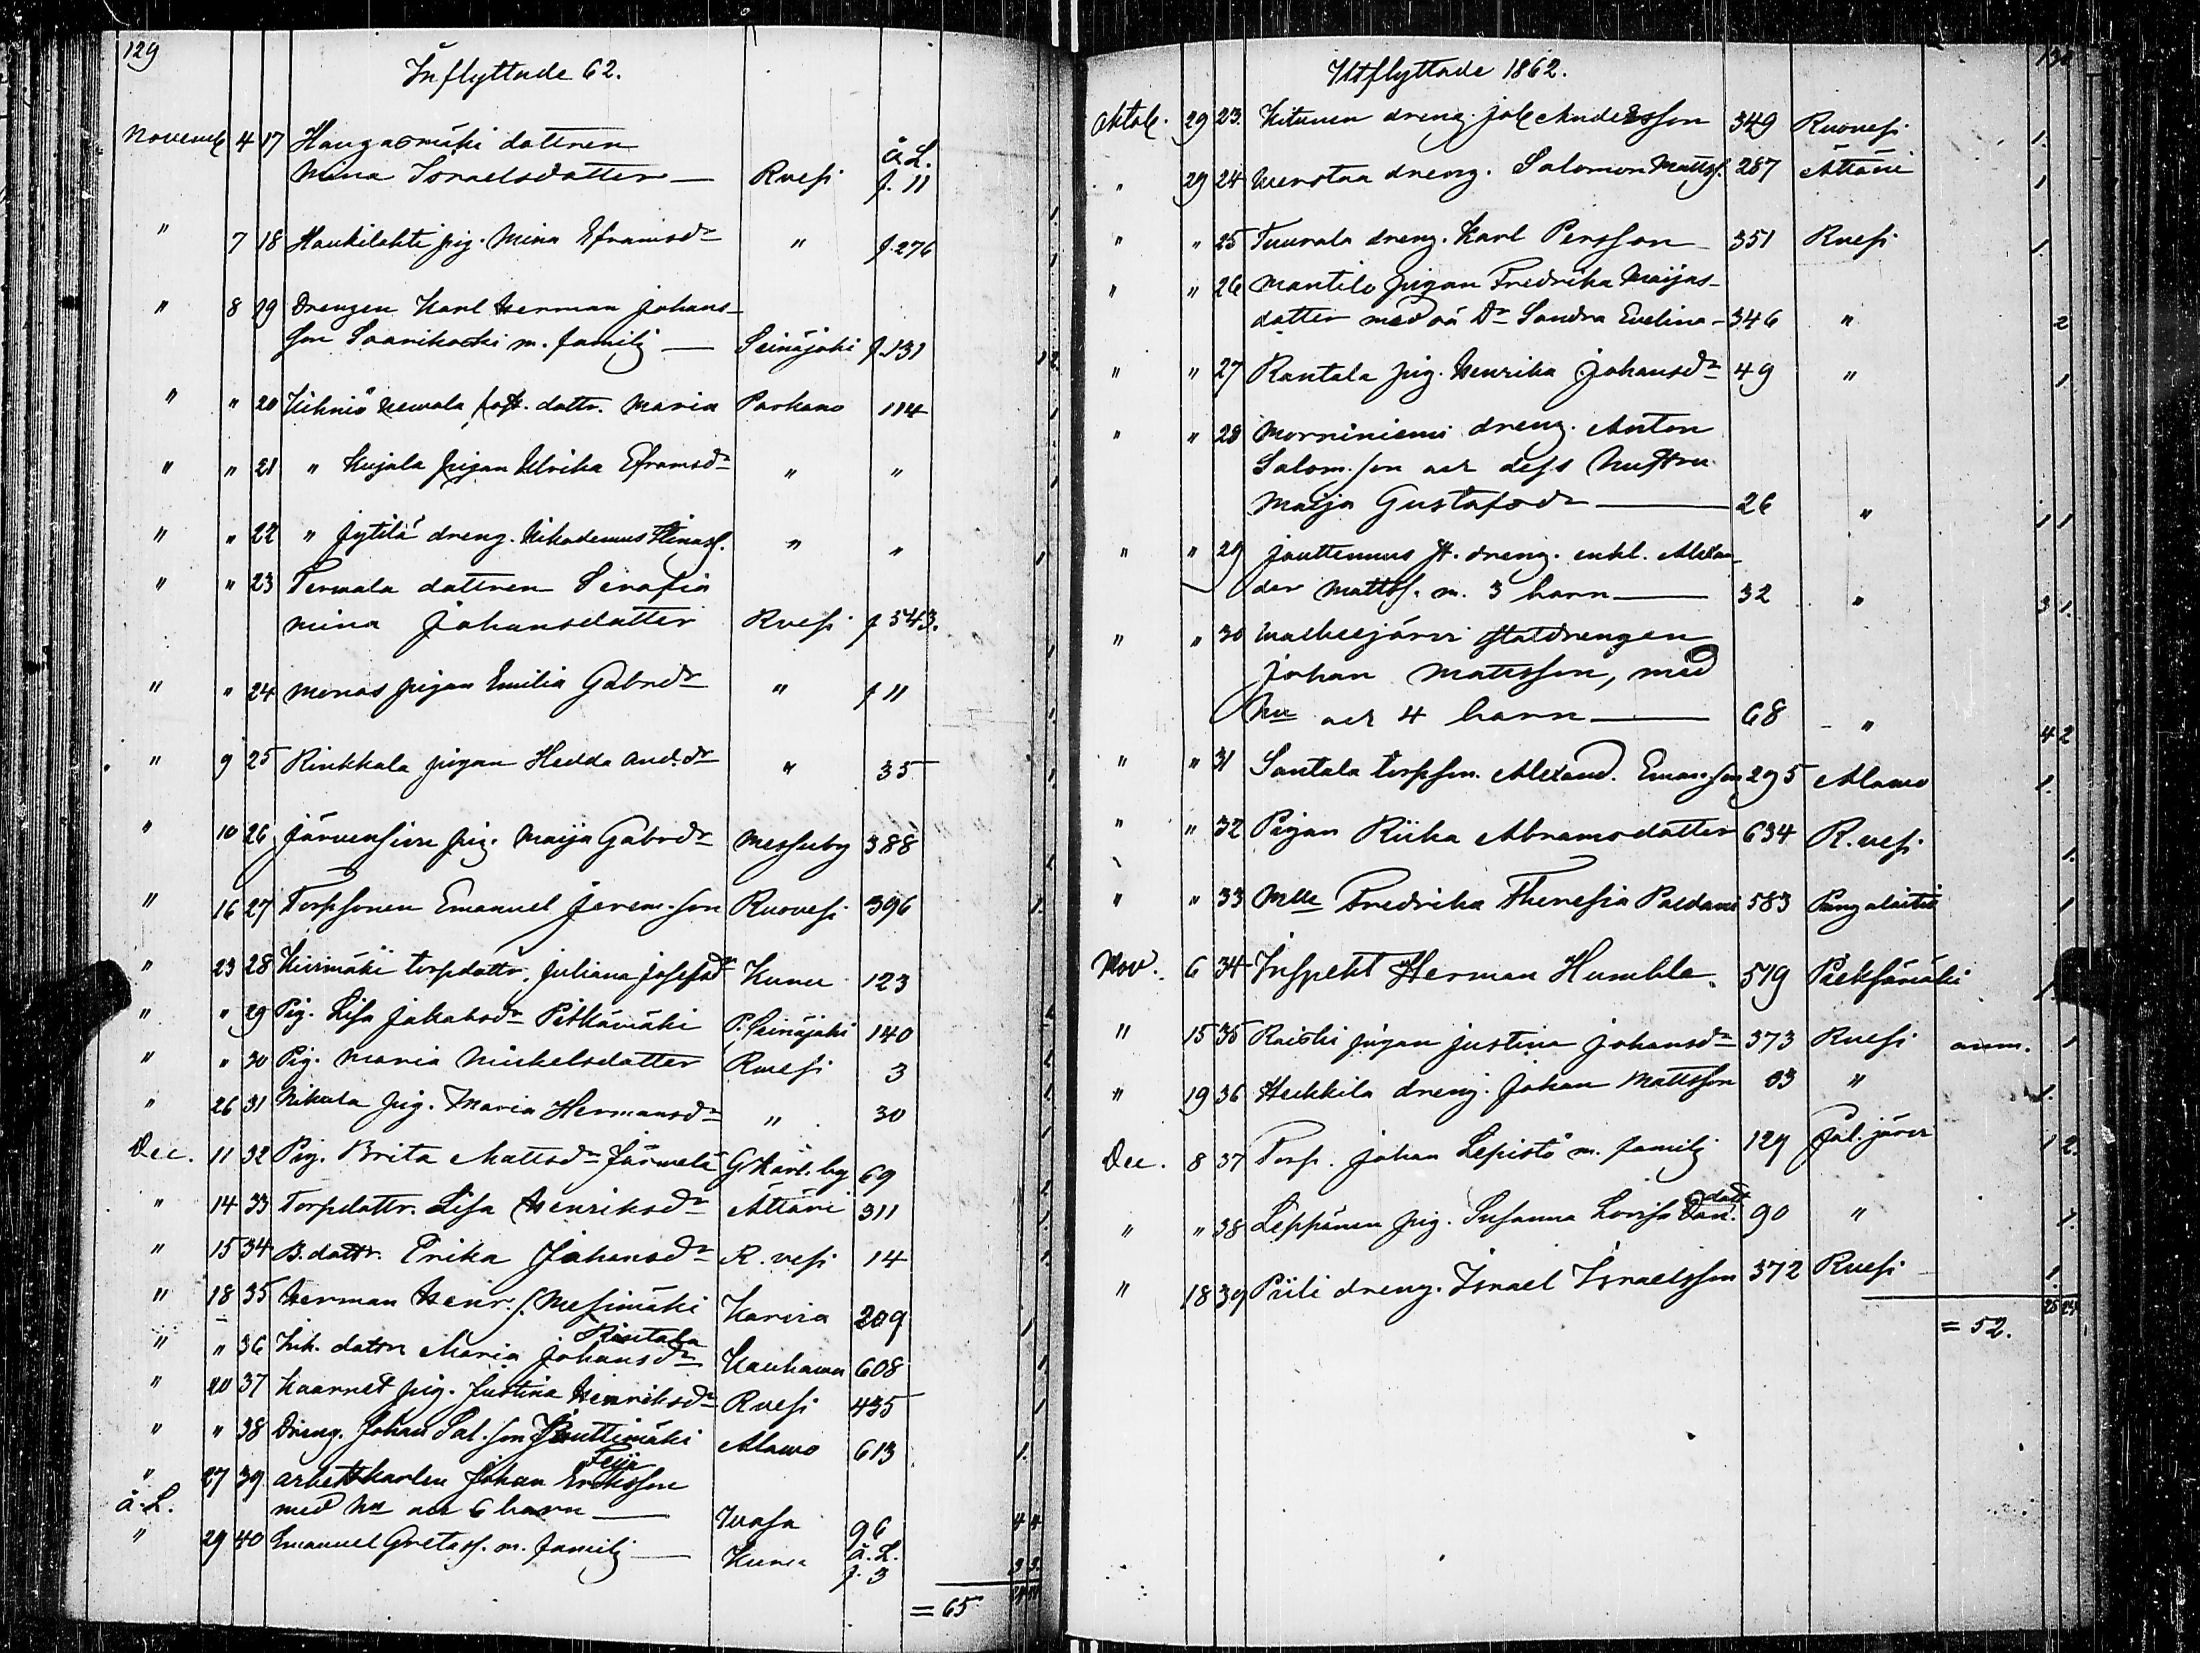 129
Inflyttade 62.
Novemb 4 17 Hangasmäki dottren å L.
Mina Israelsdotter — Rvesi f. 11
" 7 18 Haukilahti pig. Mina Eframsdr " f. 276 1
" 8 19 Drengen Karl Herman Johans-
son Saarikoski m. familj — Seinäjoki f. 131 1 2
" " 20 Kihniö Newala dottr. Maria Parkano 114 1
" " 21 " Kujala pigan Ulrika Eframsdr " " 1
" " 22 " Jytilä dreng. Nikodemus " " 1
" " 23 Terwala dottren Serafia
Mina Johansdotter Rvesi f 543. 1
" " 24 Monas pigan Emilia Gabrdr " f 11 1.
" 9 25 Rinkkala pigan Hedda And.dr " 35 1.
" 10 26 Järvensivu pig. Maija Gabrdr Messuby 388 1
" 16 27 Torpsonen Emanuel Jerem.son Ruovesi 396 1.
" 23 28 Kivimäki torpdottr. Juliana Josefsdr Kuru 123
" " 29 Pig. Lisa Jakobsdr Pitkämäki P. Seinäjoki 140 1
" " 30 Pig. Maria Mickelsdotter Rvesi 3 1
" 26 31 Nikula pig. Maria Hermansdr " 30 1
Dec. 11 32 Pig. Brita Mattsdr Järwelä G Karl.by 69 1
" 14 33 Torpdottr. Lisa Henriksdr Ättäri 311 1
" 15 34 B.dottr. Erika Johansdr R.vesi 14 1.
" 18 35 Herman Henr.s. Mesimäki Karvia 209 1
" " 36 Inh. dottr Maria Johansdr Rintala Kauhawa 608 1
" 20 37 Kaarnet pig. Justina Henriksdr Rvesi 435 1
" " 38 Dreng. Johan Sal.son Jouttimäki Alawo 613 1.
" 27 39 Arbetskarlen Johan Eriksson
å L. med hu och 6 barn — Wasa 96 4 4
" 29 40 Emanuel Gretass. m. familj — Kuru å. L. f. 3 3 3
= 65
Utflyttade 1862.
Oktob. 29 23. Kitunen dreng. Jok Andersson 349 Ruovesi 1.
" 29 24 Werstaa dreng. Salomon Matts. 287 Ättäri 1
" " 25 Tuurala dreng. Karl Persson 351 Rvesi 1.
" " 26 Mantila pigan Fredrika Maijas-
dotter med oä Dr Sandra Evelina - 346 " 2
" " 27 Rantala pig. Henrika Johansdr 49 " 1
" " 28 Morriniemi dreng. Anton
Salom.son och dess hustru
Maija Gustafsdr — 26 " 1 1
" " 29 Jouttenus st. dreng. enkl. Alexan-
der Mattss. m. 3 barn — 32 " 3 1.
" " 30 Wackerjärvi statdrengen
Johan Mattsson, med
hu och 4 barn — 68 " 4 2
" " 31 Santala torpson. Alexand. Eman.son 295 Alawo 1.
" " 32 Pigan Riika Abramsdotter 634 R.vesi 1.
" " 33 Mlle Fredrika Theresia Paldani 583 Pungalaitio 1
Nov. 6 34 Inspekt Herman Humble. 519 Pieksämäki 1.
" 15 35 Raiski pigan Justina Johansdr 373 Rvesi anm. 1
" 19 36 Heikkilä dreng. Johan Mattsson 33 " 1.
Dec. 8 37 Torp. Johan Lepistö m. familj 129 Jal.järvi 1 2.
" " 38 Leppänen pig. Susanna Lovisa Dan. dott 90 " 1.
" 18 39 Piili dreng. Israel Israelsson 372 Rvesi 1.
= 52.